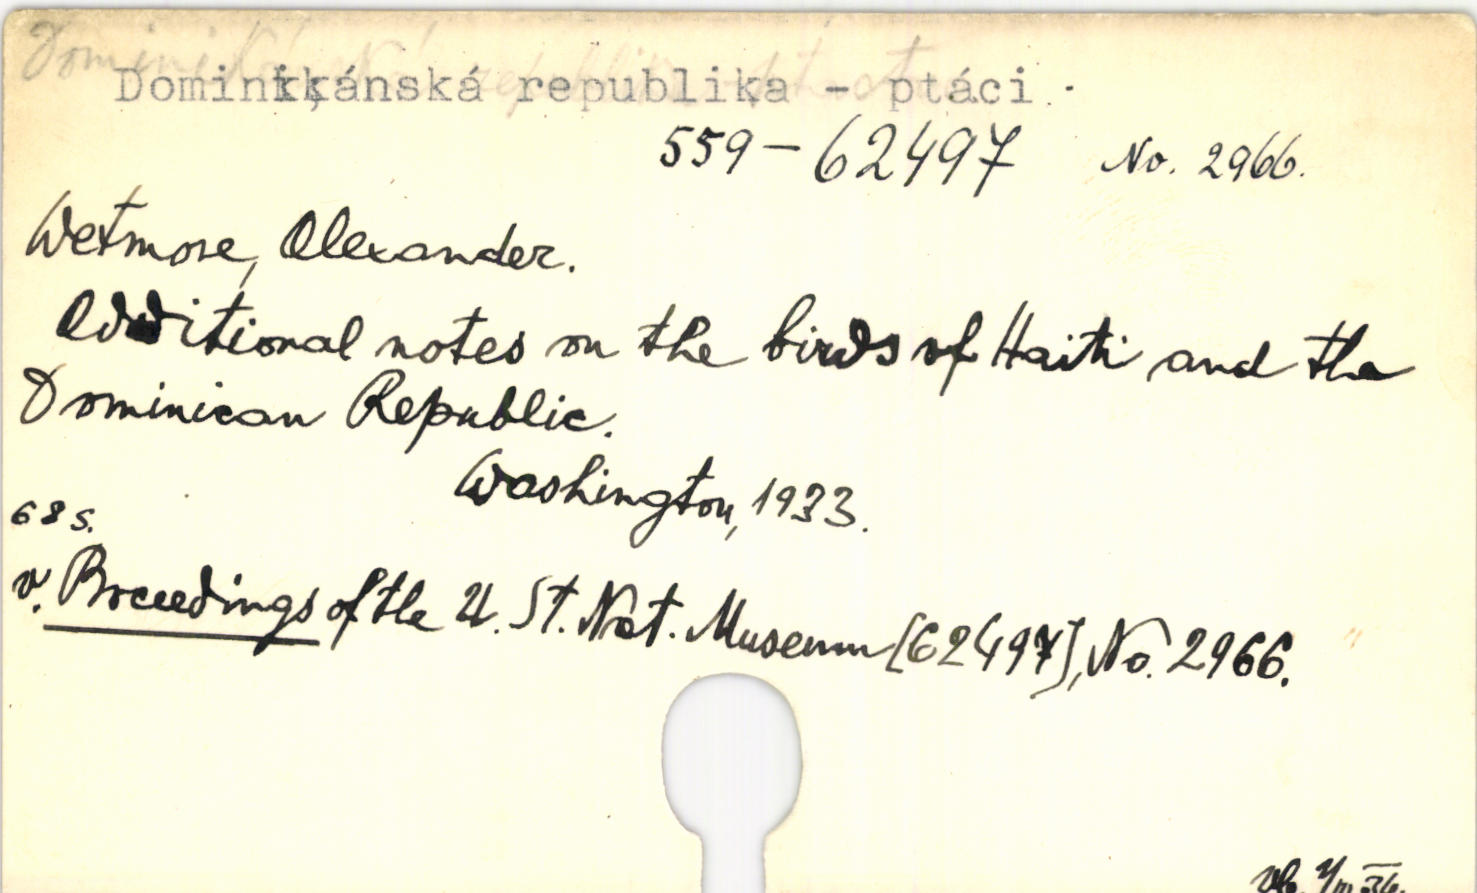 Dominikánská republika - ptáci
559-62497 No. 2966.
Wetmore, Alexander.
Additional notes on the birds of Haiti and the
Dominican Republic.
Washington, 1933.
68 s.
v. Proceedings of the U. St. Nat. Museum [62497], No. 2966.